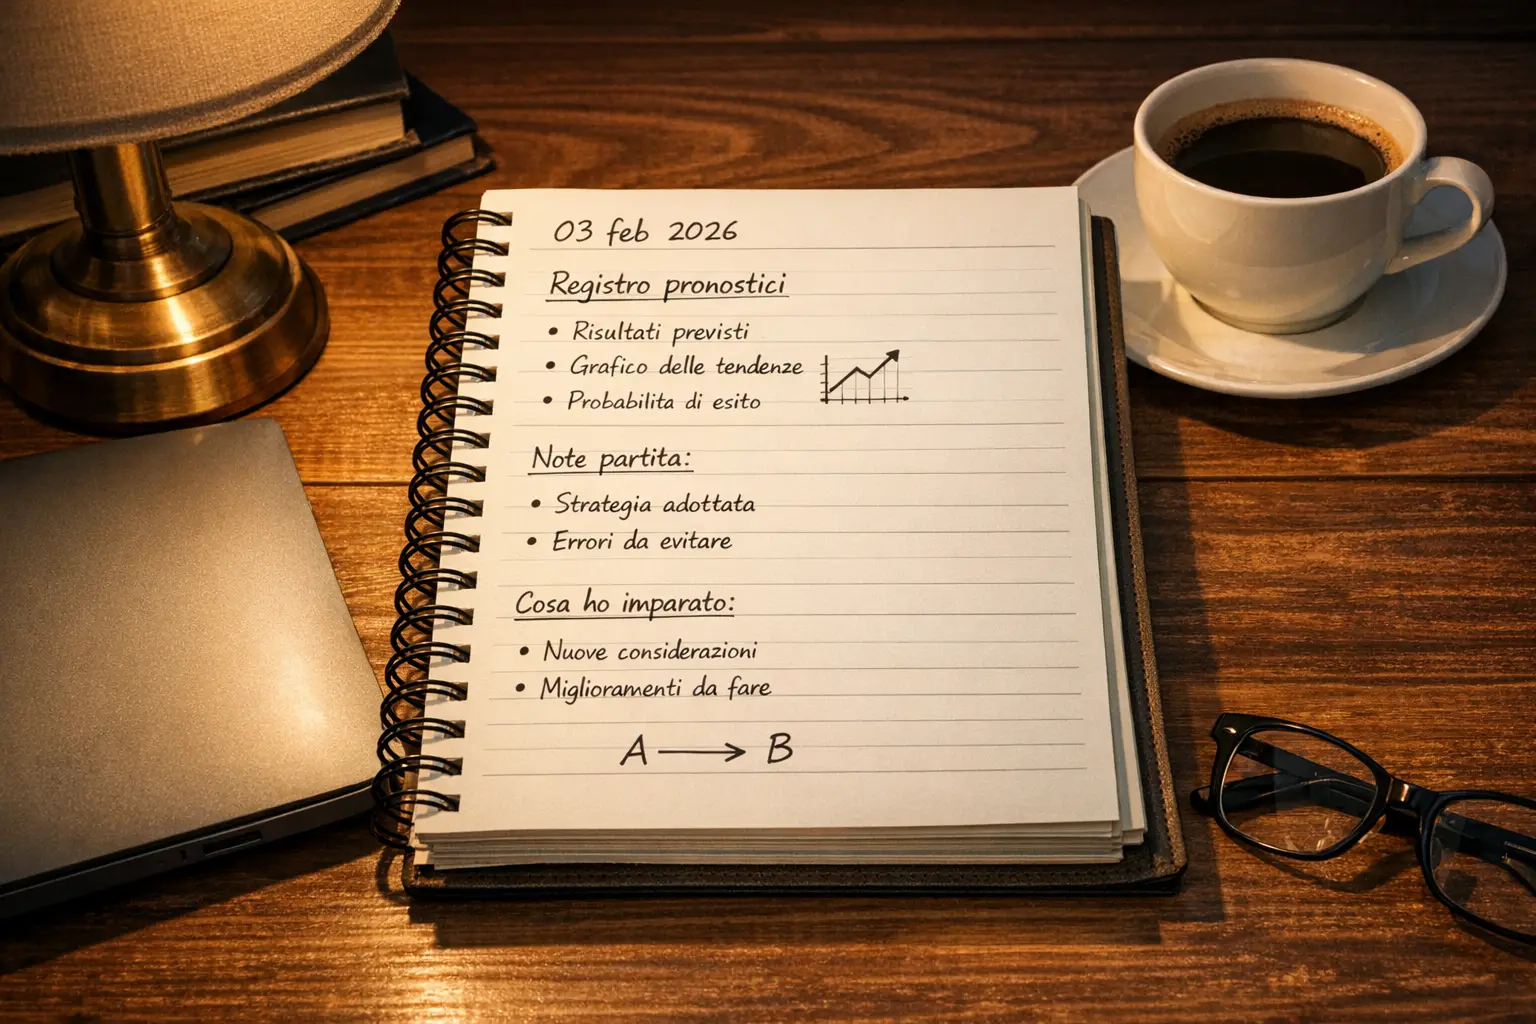 03 feb 2026
Registro pronostici
• Risultati previsti
• Grafico delle tendenze
• Probabilita di esito
Note partita:
• Strategia adottata
• Errori da evitare
Cosa ho imparato:
• Nuove considerazioni
• Miglioramenti da fare
A → B